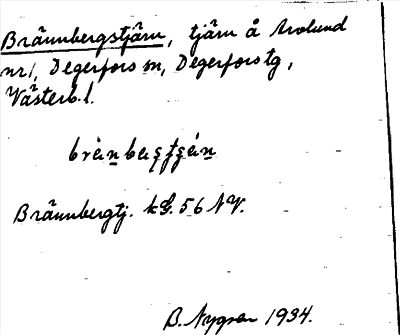 Brännbergstjärn, tjärn å Avalund
nr 1, Degerfors sn, Degerfors tg,
Västerb. l.
Brännbergtj. kG. 56 NV.
B. Nygren 1934.